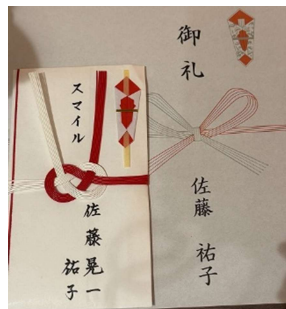 御礼
佐藤 祐子
スマイル
佐藤晃一
祐子